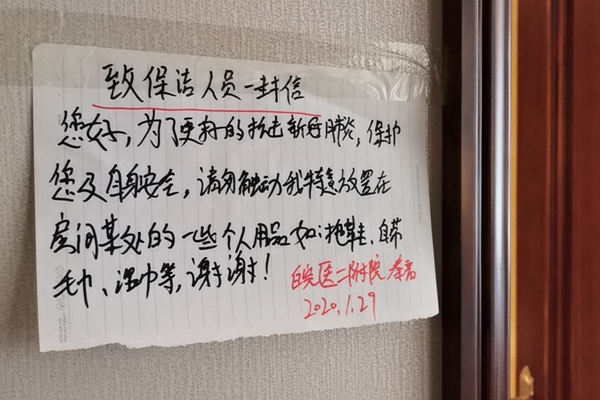 致保洁人员一封信
您好,为了更好的抗击新冠肺炎,保护
您及自身安全,请勿触动我特意放置在
房间某处的一些个人用品如:拖鞋、自带
毛巾、浴巾等,谢谢!
医二附院
2020.1.29